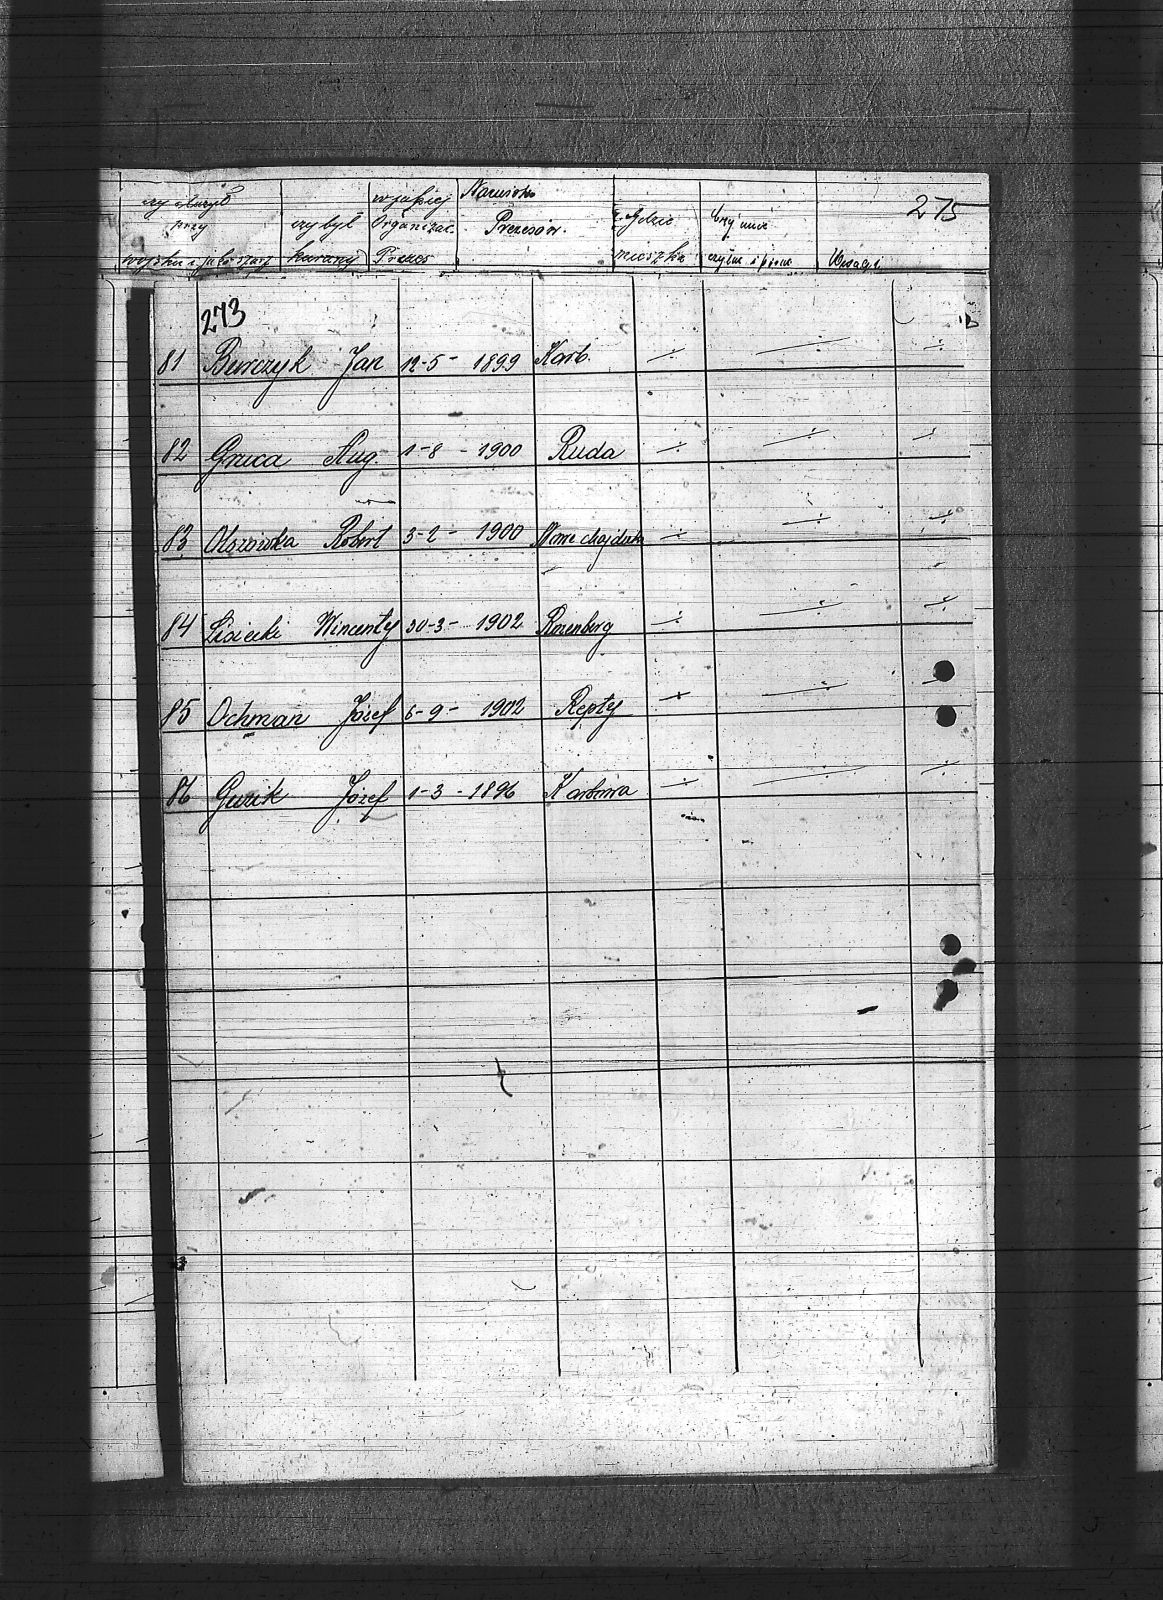 275
czy służył czy był w jakiej Nazwisko gdzie czy umie
przy karany Organizac. Prezesów. mieszka czyta i pisze Uwagi
wojsku i jaka szarż Prezes
273
81 Burczyk Jan 12-5- 1899 Karb.
82 Gruca Aug. 1-8 - 1900 Ruda
83 Olszowka Robert 3-2- 1900
84 Lisiecki Wincenty 30-3- 1902 Rosenberg
85 Ochman Józef 6-9- 1902 Repty
86 Gurik Józef 1-3- 1896